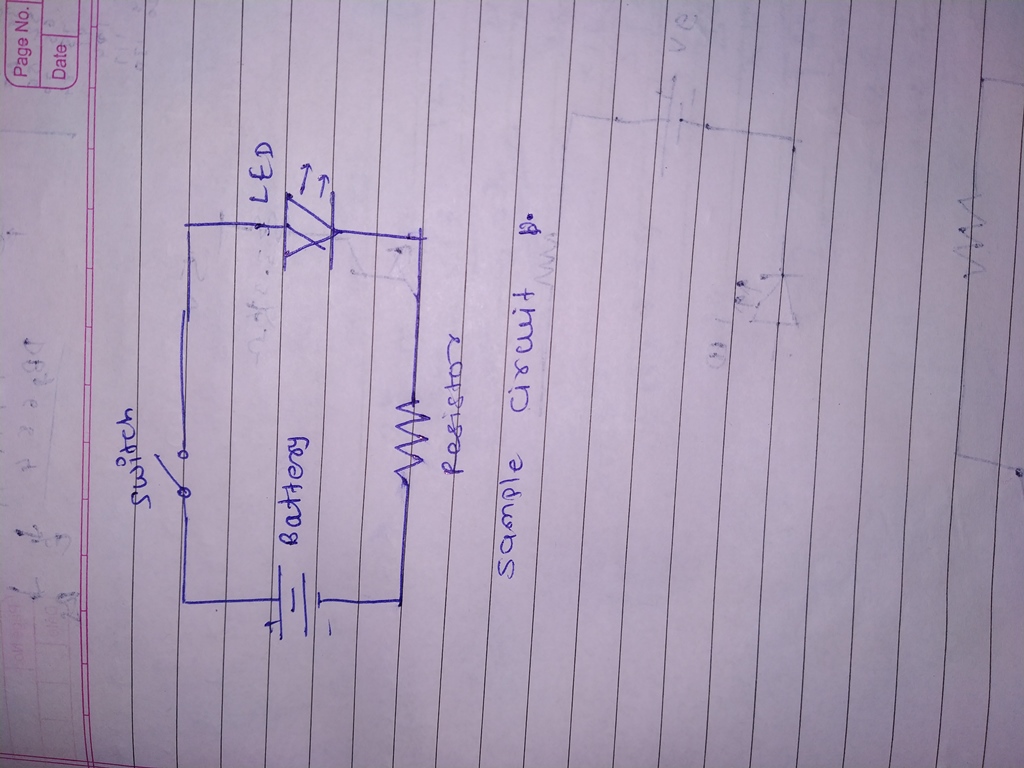 Page No.
Date
Switch
LED
+
Battery
-
Resistor
Sample Circuit